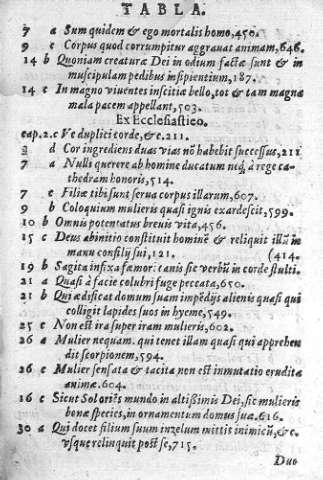 TABLA.
7 a Sum quidem & ego mortalis homo, 450.
9 c Corpus quod corrumpitur aggrauat animam, 646.
14 b Quoniam creaturæ Dei in odium factæ sunt & in
muscipulam pedibus insipientium, 187.
14 c In magno viuentes inscitiæ bello, tot & tam magna
mala pacem appellant, 503.
Ex Ecclesiastico.
cap. 2. c Væ duplici corde, &c. 211.
3 d Cor ingrediens duas vias nō habebit successus, 211
7 a Nulli querere ab homine ducatum neq; à rege ca-
thedram honoris, 514.
7 c Filiæ tibi sunt serua corpus illarum, 607.
9 b Coloquium mulieris quasi ignis exardescit, 599.
10 b Omnis potentatus breuis vita, 456.
15 c Deus abinitio constituit hominē & reliquit illū in
manu consilij sui, 121. (414.
19 b Sagita infixa fæmori canis sic verbū in corde stulti.
21 a Quasi à facie colubri fuge peccata, 650.
21 b Qui ædificat domum suam impēdijs alienis quasi qui
colligit lapides suos in hyeme, 549.
25 c Non est ira super iram mulieris, 602.
26 a Mulier nequam. qui tenet illam quasi qui apprehen
dit scorpionem, 594.
26 c Mulier sensata & tacita non est inmutatio eruditæ
animæ. 604.
16 c Sicut Sol oriēs mundo in altissimis Dei, sic mulieris
bonæ species, in ornamentum domus suæ. 616.
30 a Qui docet filium suum inzelum mittit inimicū, & c.
vsque relinquit post se, 715.
Duo